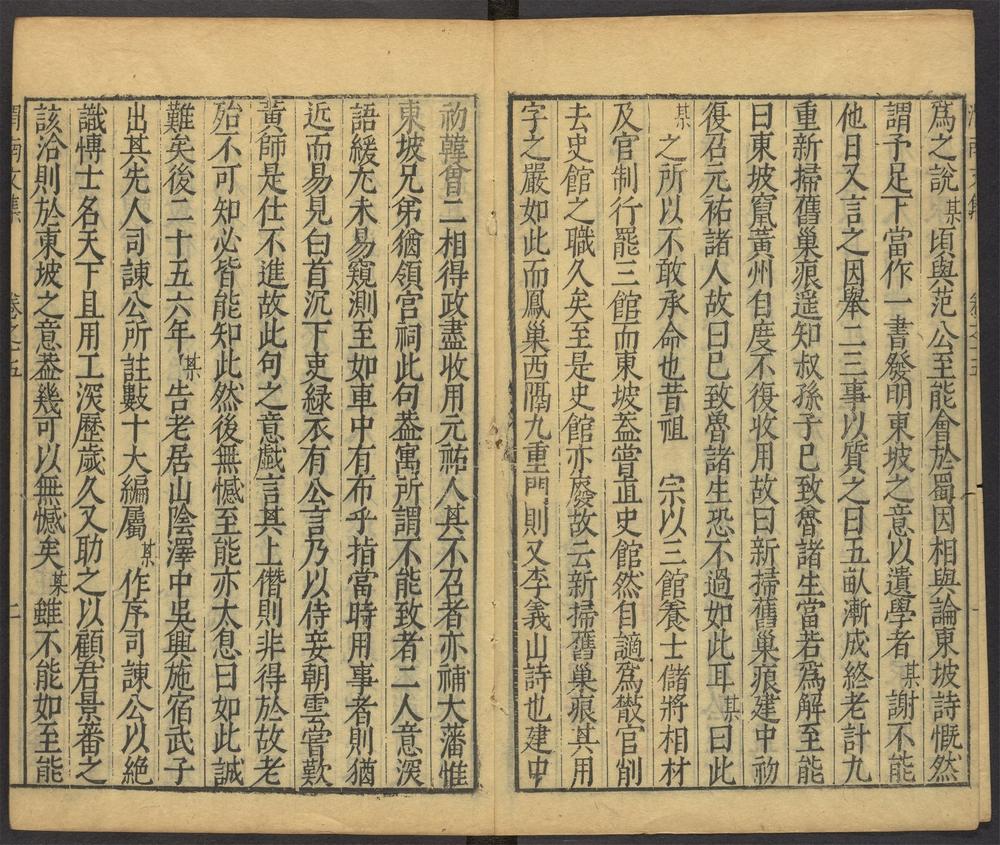 爲之說某頃與范公至能會於蜀因相與論東坡詩慨然
謂予足下當作一書發明東坡之意以遺學者某謝不能
他日又言之因舉二三事以質之曰五畝漸成終老計九
重新掃舊巢痕遥知叔孫子已致魯諸生當若爲解至能
曰東坡竄黃州自度不復收用故曰新掃舊巢痕建中初
復召元祐諸人故曰已致魯諸生恐不過如此耳某曰此
某之所以不敢承命也昔祖 宗以三館養士儲將相材
及官制行罷三館而東坡蓋嘗直史館然自謫爲散官削
去史館之職久矣至是史館亦廢故云新掃舊巢痕其用
字之嚴如此而鳳巢西隔九重門則又李義山詩也建中
初韓曾二相得政盡收用元祐人其不召者亦補大藩惟
東坡兄弟猶領官祠此句蓋寓所謂不能致者二人意深
語緩尤未易窺測至如車中有布乎指當時用事者則猶
近而易見白首沉下吏緑衣有公言乃以侍妾朝雲嘗歎
黃師是仕不進故此句之意戱言其上僭則非得於故老
殆不可知必皆能知此然後無憾至能亦太息曰如此誠
難矣後二十五六年某告老居山陰澤中吳興施宿武子
出其先人司諫公所註數十大編屬某作序司諫公以絶
識愽士名天下且用工深歷歲久又助之以顧君景蕃之
該洽則於東坡之意蓋幾可以無憾矣某雖不能如至能
渭南文集 卷之十五 二